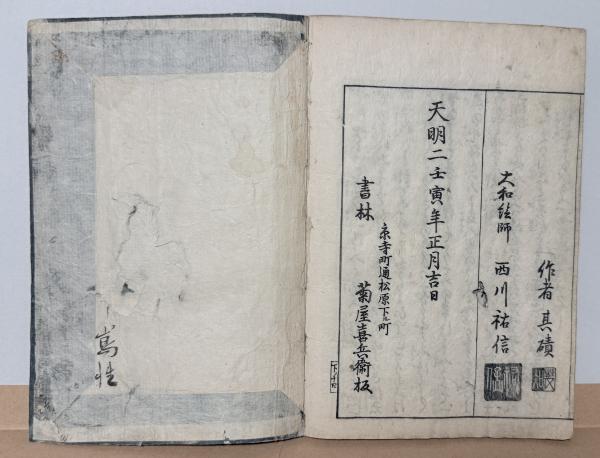 作者 其磧
大和絵師 西川祐信
天明二壬寅年正月吉日
京寺町通松原下ル町
書林 菊屋喜兵衛板